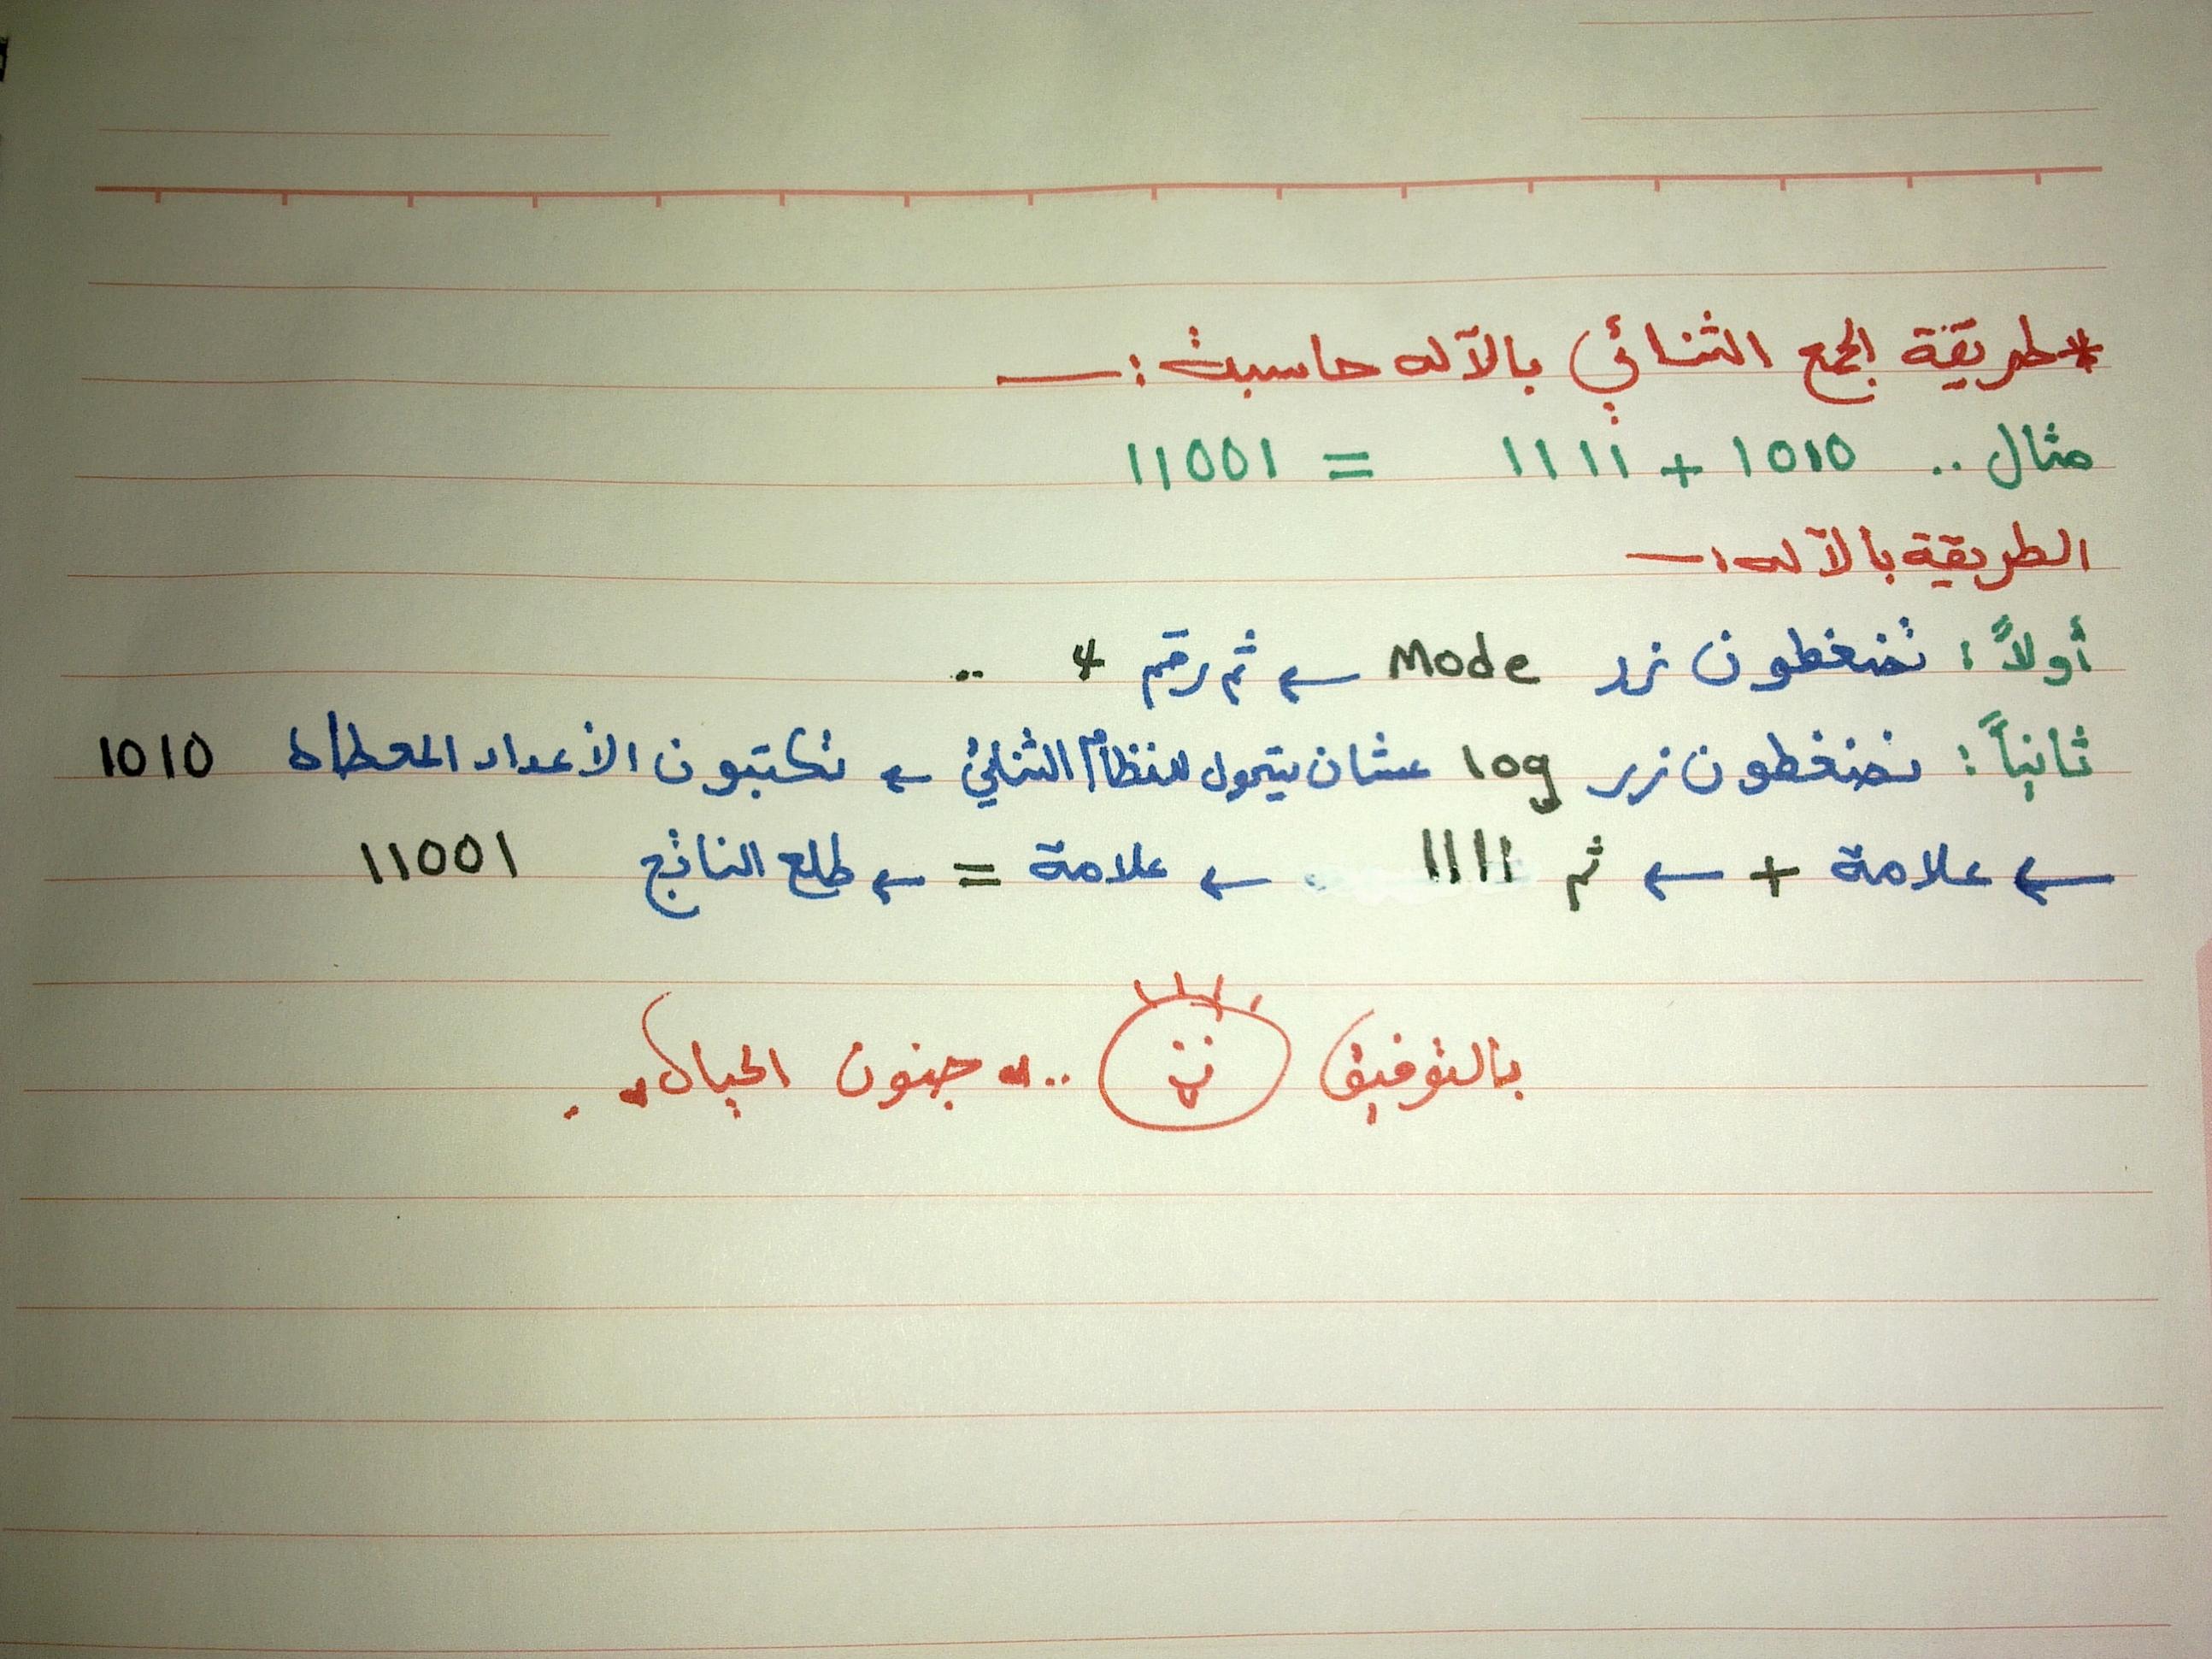 * طريقة الجمع الثنائي بالآله حاسبة :ـ
مثال .. 1010 + 1111 = 11001
الطريقة بالآله :ـ
أولاً : تضغطون زر Mode ← ثم رقم 4 ..
ثانياً : تضغطون زر log عشان يتحول للنظام الثنائي ← تكتبون الأعداد المعطاه 1010
← علامة + ← ثم 1111 ← علامة = ← طلع الناتج 11001
بالتوفيق .. جنون الحياه .